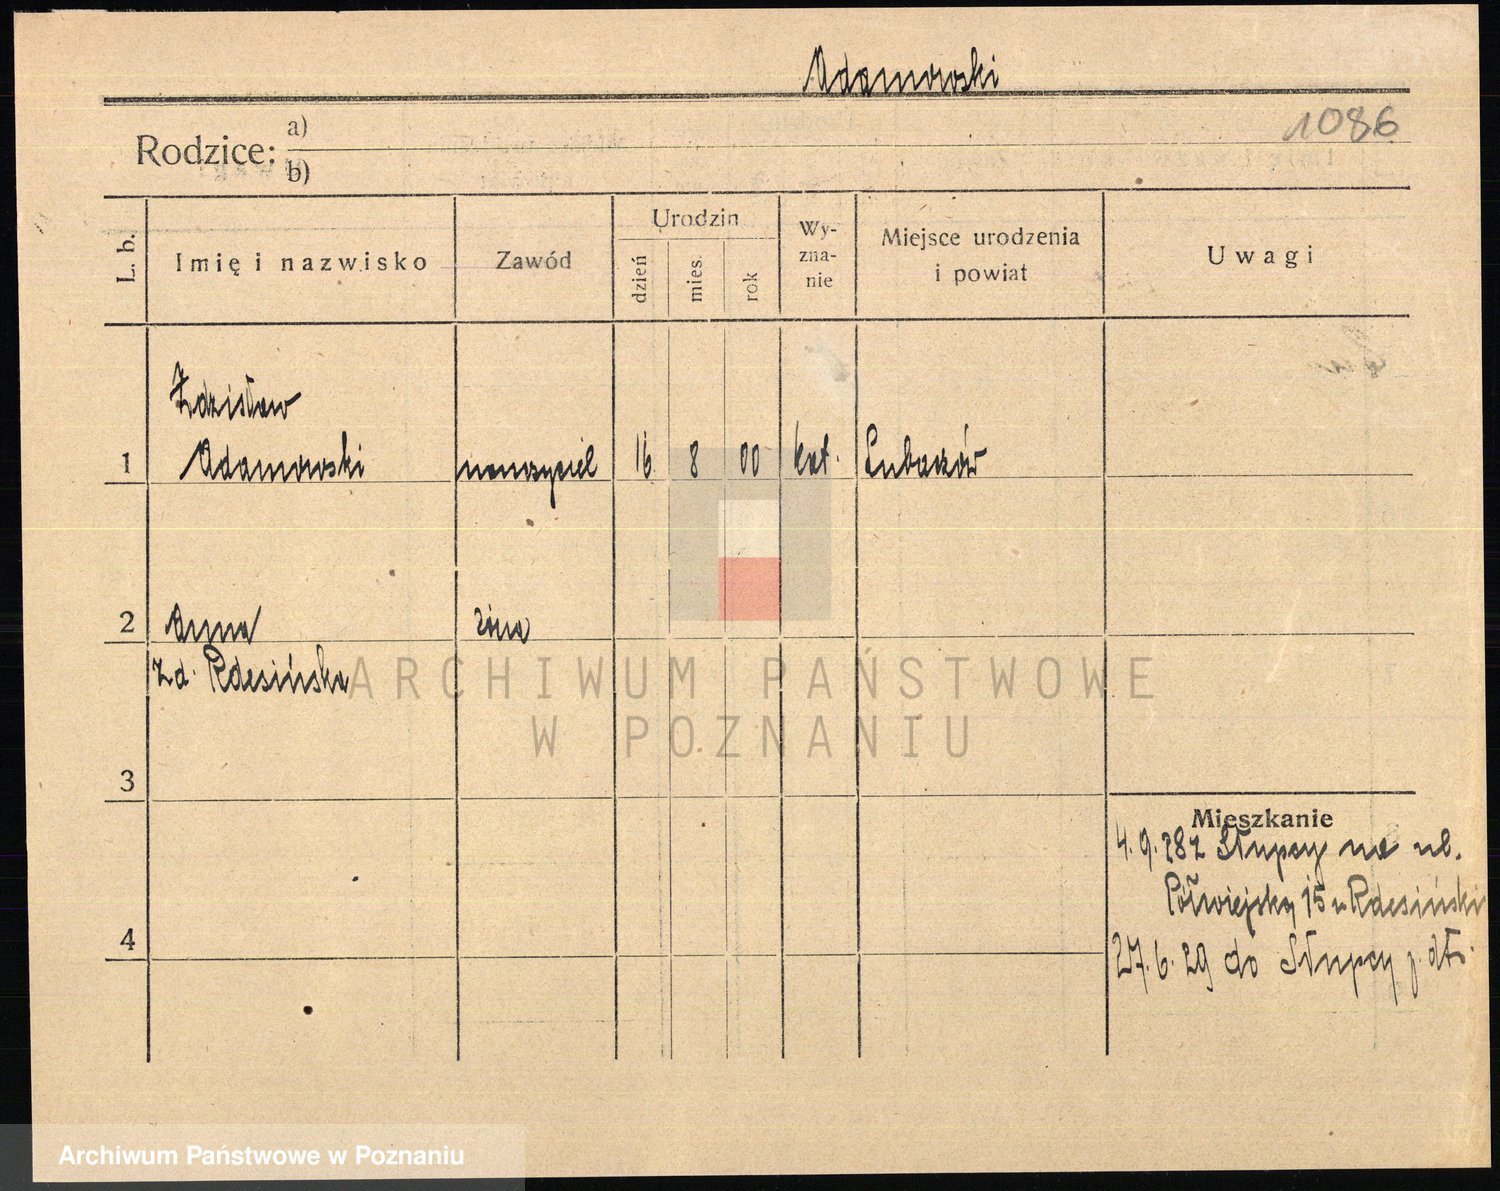 Adamowski
1086
Rodzice: a)
b)
L. b.
Imię i nazwisko
Zawód
Urodzin
dzień
mies.
rok
Wy-
zna-
nie
Miejsce urodzenia
i powiat
Uwagi
Zdzisław
1 Adamowski nauczyciel 16 8 00 kat. Lubaczów
2 Anna żona
Zd. Rdesińska
ARCHIWUM PAŃSTWOWE
W POZNANIU
3
Mieszkanie
4.9.28 z Słupcy na ul.
Półwiejską 15 u Rdesiński
4
27.6.29 do Słupcy p.
Archiwum Państwowe w Poznaniu